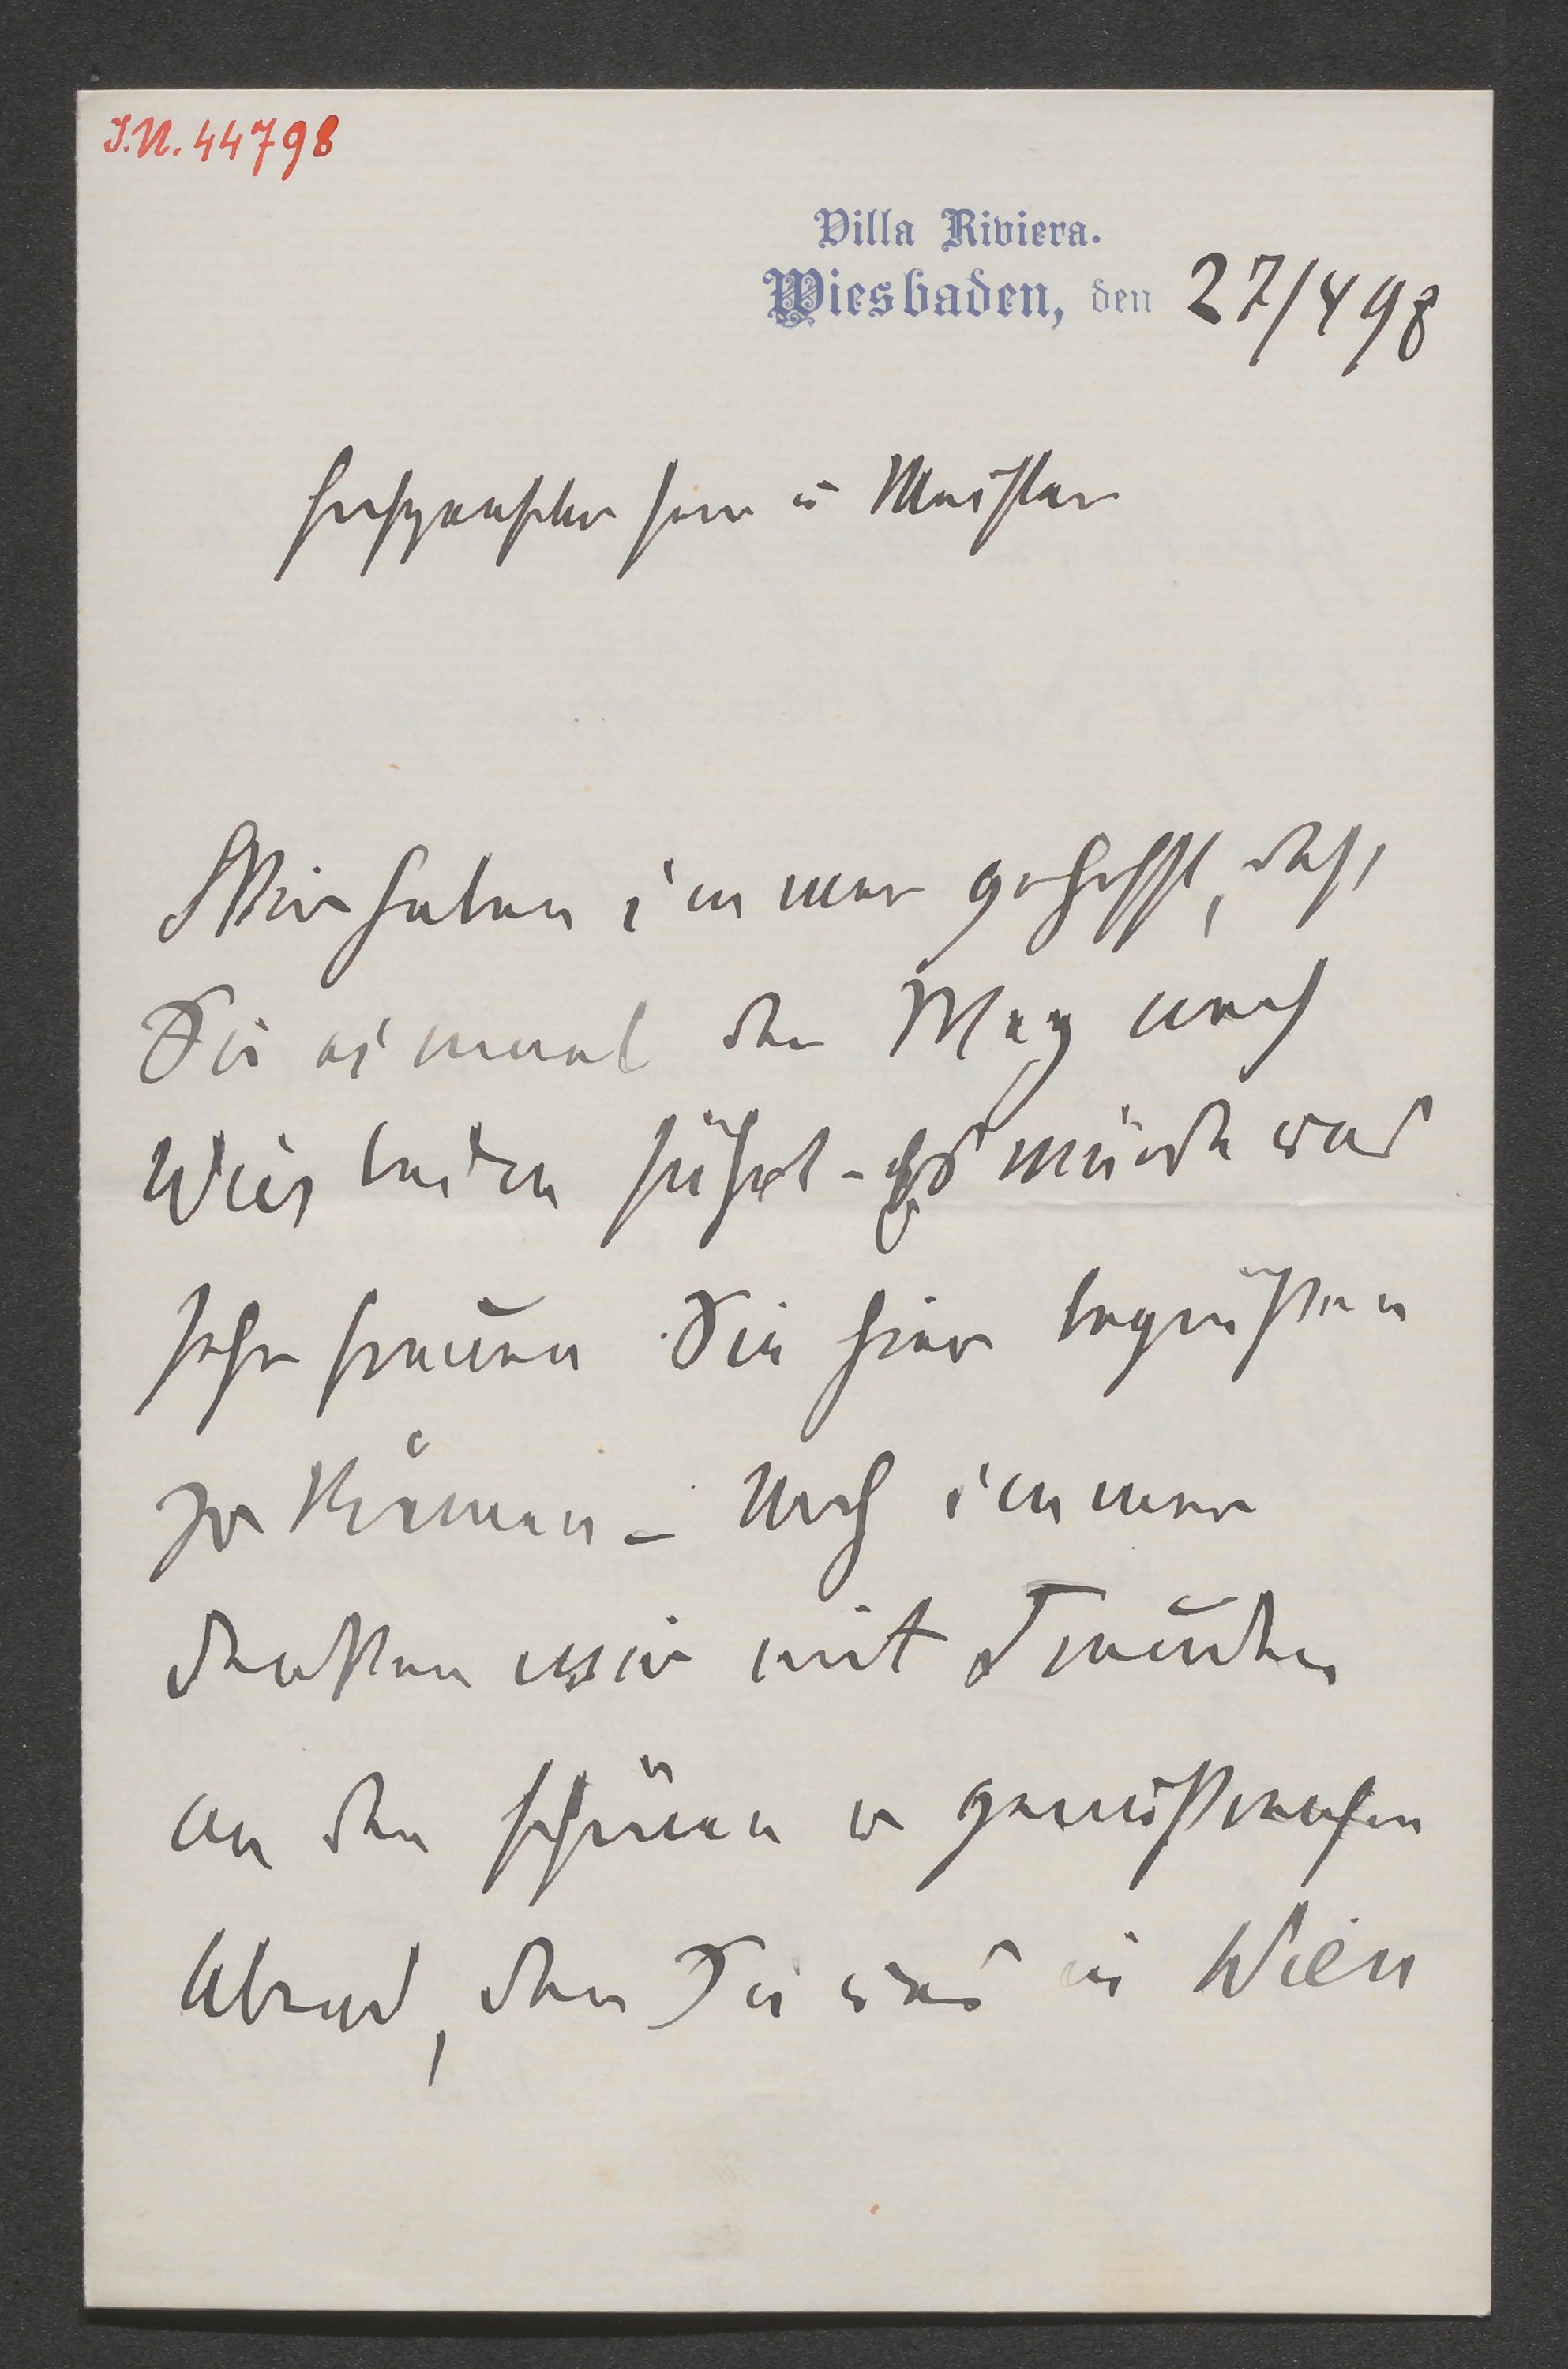 I.N. 44798
Villa Riviera.
Wiesbaden, den 27/4 98
Hochgeehrter Herr u Meister
Wir haben immer gehofft, daß
Sie einmal der Weg nach
Wiesbaden führt - Es würde uns
sehr freuen Sie hier begrüßen
zu können - Noch immer
denken wir mit Freuden
an den schönen u genußreichen
Abend, den Sie uns in Wien